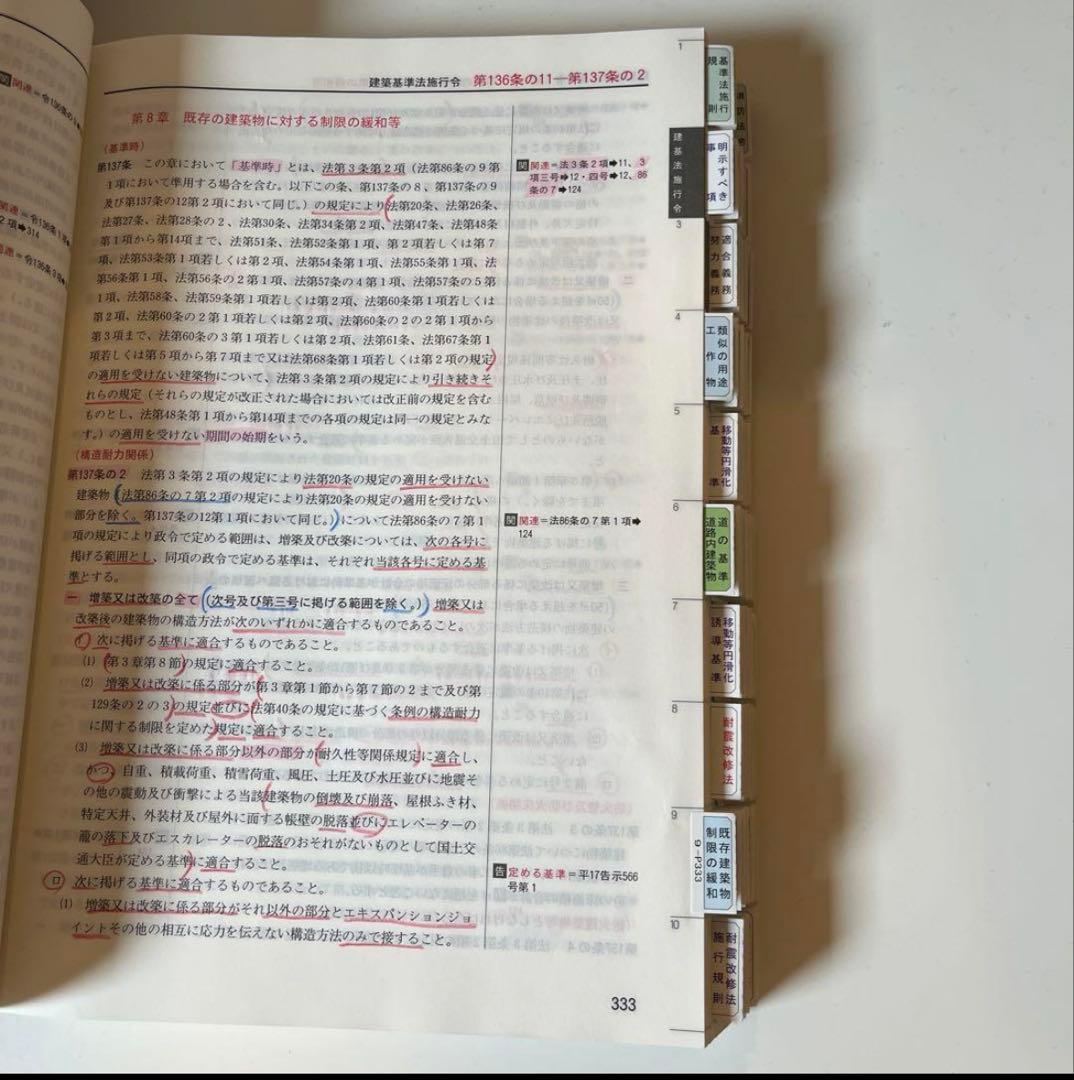 建築基準法施行令 第136条の11―第137条の2
第8章 既存の建築物に対する制限の緩和等
(基準時)
第137条 この章において「基準時」とは、法第3条第2項(法第86条の9第
1項において準用する場合を含む。以下この条、第137条の8、第137条の9
及び第137条の12第2項において同じ。)の規定により法第20条、法第26条、
法第27条、法第28条の2、法第30条、法第34条第2項、法第47条、法第48条
第1項から第14項まで、法第51条、法第52条第1項、第2項若しくは第7
項、法第53条第1項若しくは第2項、法第54条第1項、法第55条第1項、法
第56条第1項、法第56条の2第1項、法第57条の4第1項、法第57条の5第
1項、法第58条、法第59条第1項若しくは第2項、法第60条第1項若しくは
第2項、法第60条の2第1項若しくは第2項、法第60条の2の2第1項から
第3項まで、法第60条の3第1項若しくは第2項、法第61条、法第67条第1
項若しくは第5項から第7項まで又は法第68条第1項若しくは第2項の規定
の適用を受けない建築物について、法第3条第2項の規定により引き続きそ
れらの規定(それらの規定が改正された場合においては改正前の規定を含む
ものとし、法第48条第1項から第14項までの各項の規定は同一の規定とみな
す。)の適用を受けない期間の始期をいう。
(構造耐力関係)
第137条の2 法第3条第2項の規定により法第20条の規定の適用を受けない
建築物(法第86条の7第2項の規定により法第20条の規定の適用を受けない
部分を除く。第137条の12第1項において同じ。)について法第86条の7第1
項の規定により政令で定める範囲は、増築及び改築については、次の各号に
掲げる範囲とし、同項の政令で定める基準は、それぞれ当該各号に定める基
準とする。
一 増築又は改築の全て(次号及び第三号に掲げる範囲を除く。) 増築又は
改築後の建築物の構造方法が次のいずれかに適合するものであること。
イ 次に掲げる基準に適合するものであること。
(1) 第3章第8節の規定に適合すること。
(2) 増築又は改築に係る部分が第3章第1節から第7節の2まで及び第
129条の2の3の規定並びに法第40条の規定に基づく条例の構造耐力
に関する制限を定めた規定に適合すること。
(3) 増築又は改築に係る部分以外の部分が耐久性等関係規定に適合し、
かつ、自重、積載荷重、積雪荷重、風圧、土圧及び水圧並びに地震そ
の他の震動及び衝撃による当該建築物の倒壊及び崩落、屋根ふき材、
特定天井、外装材及び屋外に面する帳壁の脱落並びにエレベーターの
籠の落下及びエスカレーターの脱落のおそれがないものとして国土交
通大臣が定める基準に適合すること。
ロ 次に掲げる基準に適合するものであること。
(1) 増築又は改築に係る部分がそれ以外の部分とエキスパンションジョ
イントその他の相互に応力を伝えない構造方法のみで接すること。
関 関連=法3条2項➡11、3
項三号➡12・四号➡12、86
条の7➡124
関 関連=法86条の7第1項➡
124
告 定める基準=平17告示566
号第1
333
建基法施行令
1
3
4
5
6
7
8
9
10
基準法施行規則
明示すべき事項
適合義務
努力義務
類似の用途
工作物
移動等円滑化基準
道の基準
道路内建築物
移動等円滑化誘導基準
耐震改修法
既存建築物
制限の緩和
9-P333
耐震改修法施行規則